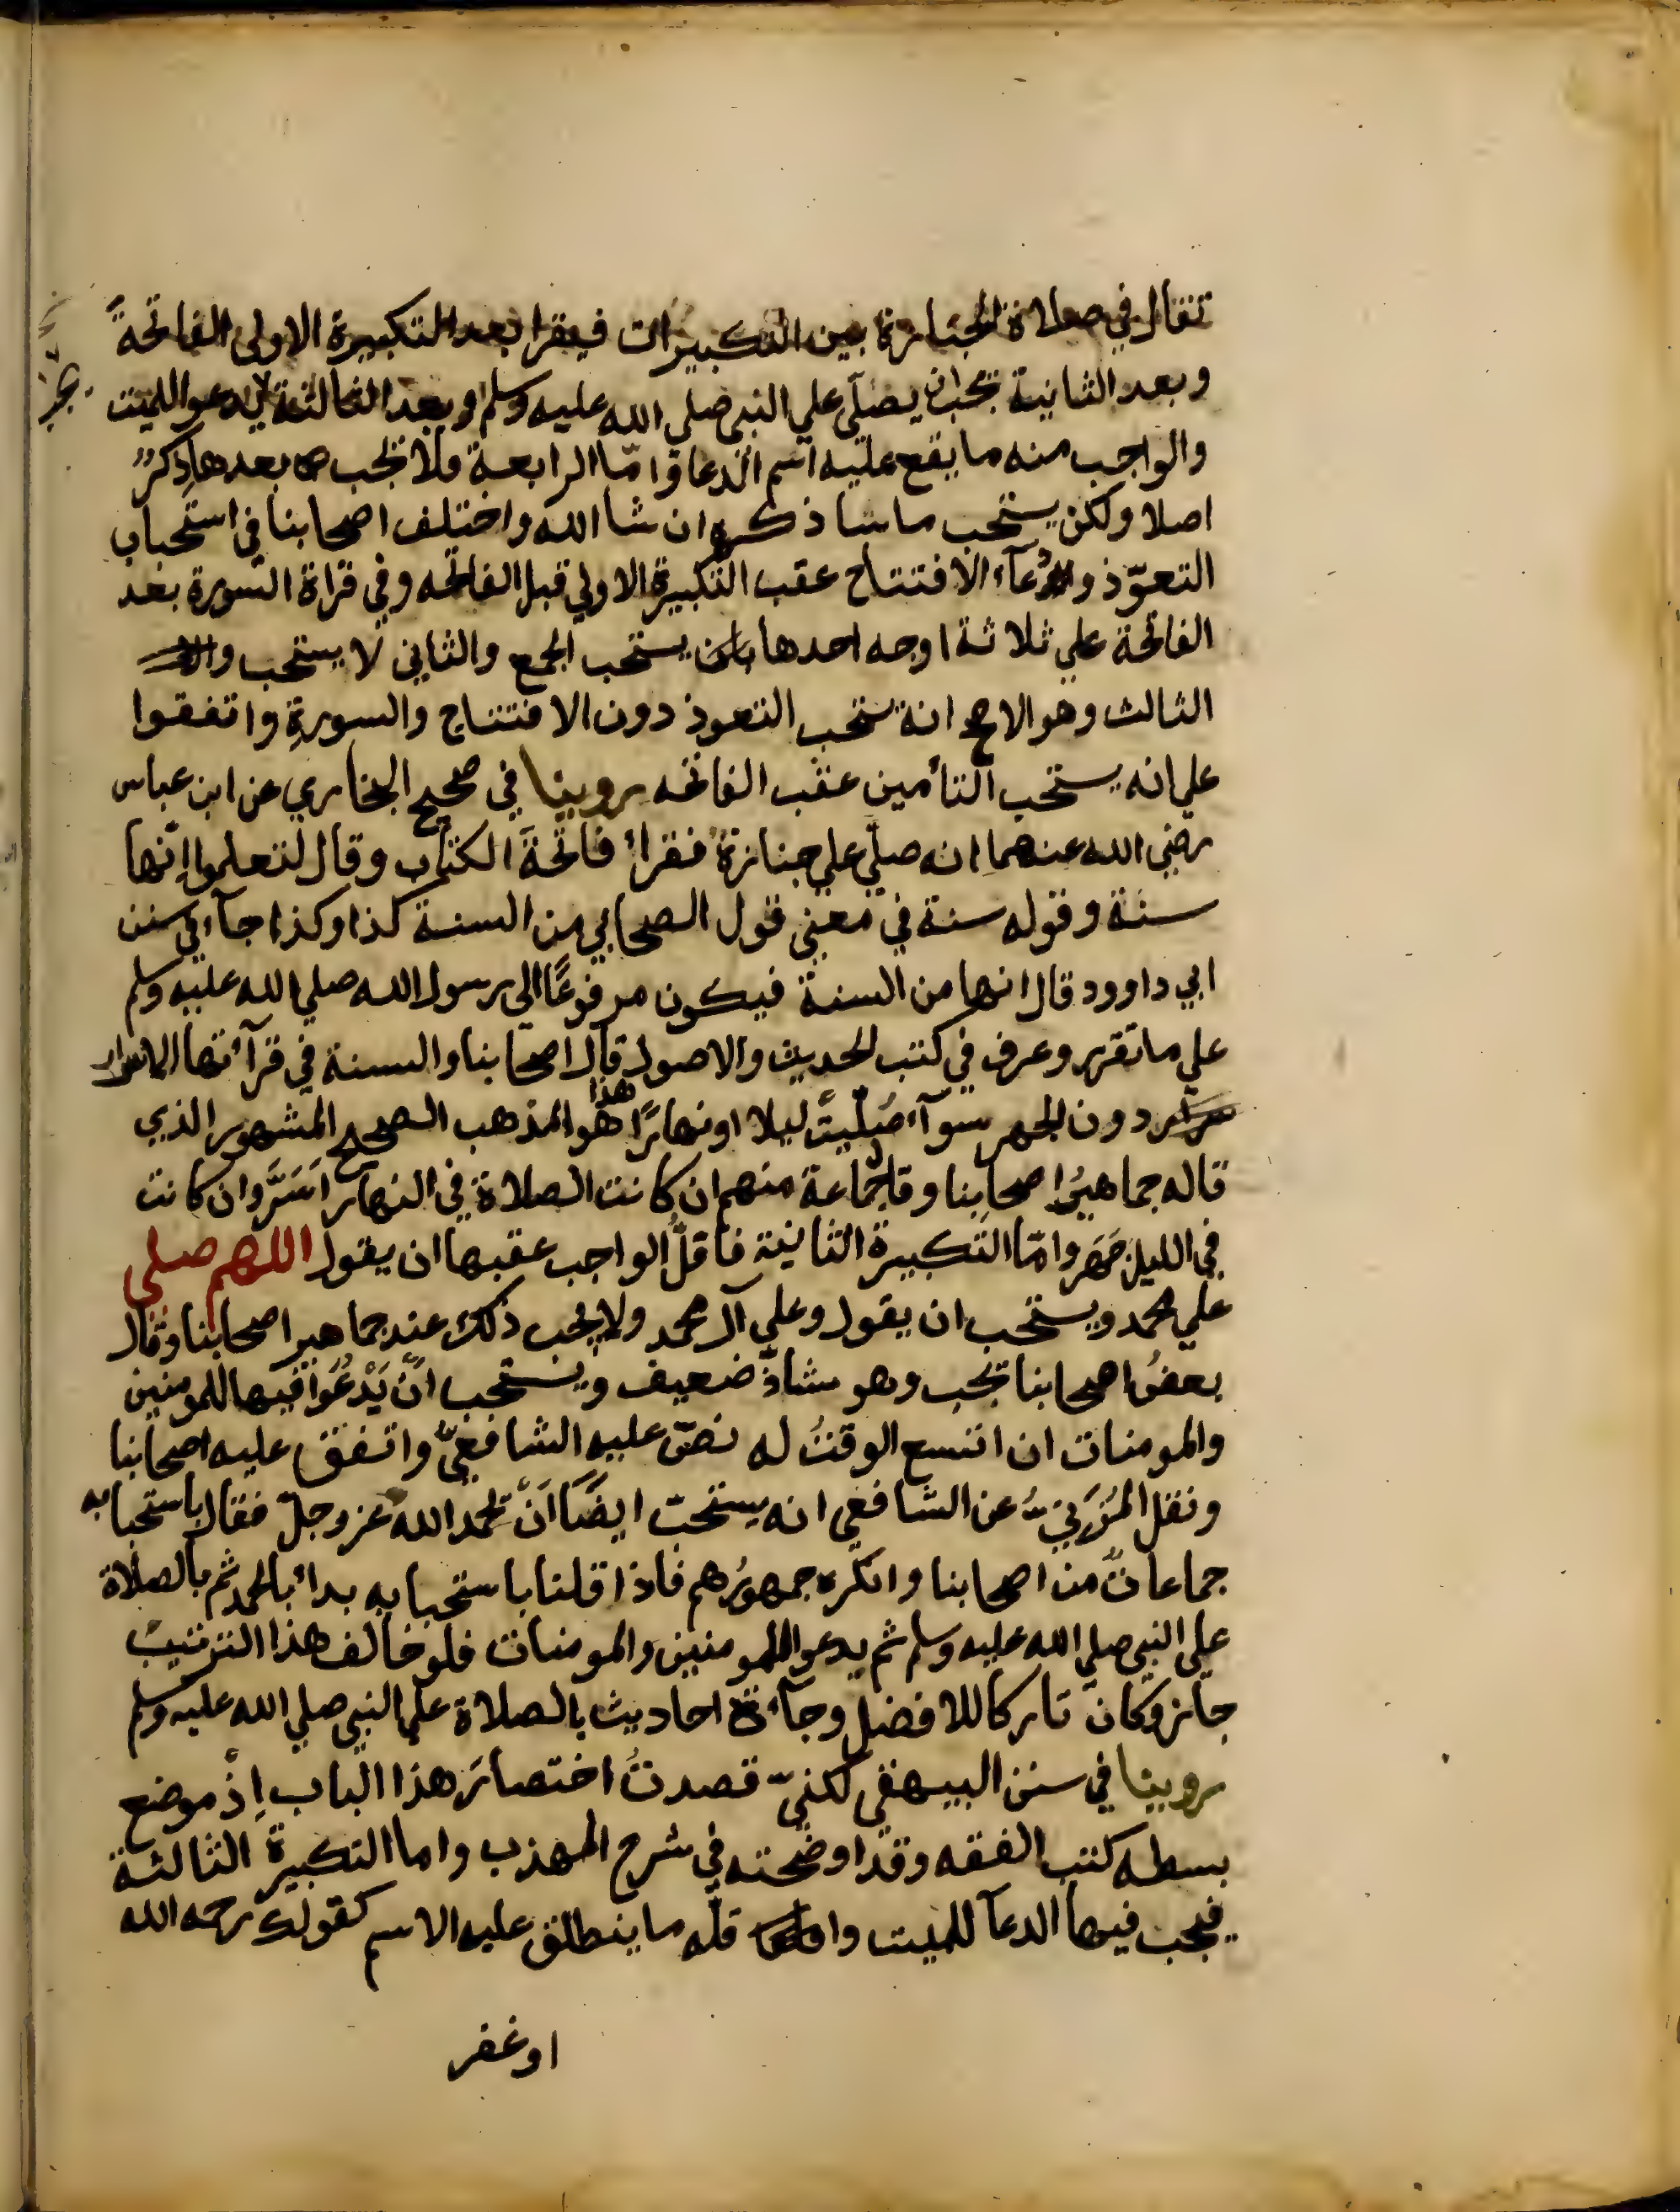 تقال في صلاة الجنازة بين التكبيرات فيقرا بعد التكبيرة الاولى الفاتحةَ
وبعد الثانية يجب ان يصلّى علي النبي صلي الله عليه وسلم وبعد الثالثة يدعو للميت
والواجب منه ما يقع عليه اسم الدعا وامّا الرابعة فلا يجب بعدها ذِكرٌ
اصلا ولكن يستحب ما سا ذكره ان شا الله واختلف اصحابنا في استحباب
التعوّذ ودُعآء الافتتاح عقب التكبيرة الاولي قبل الفاتحه وفي قراة السورة بعد
الفاتحة علي ثلاثة اوجه احدها يستحب الجمع والثاني لا يستحب
الثالث وهو الاصح انه يستحب التعوذ دون الافتتاح والسورةِ واتفقوا
علي انه يستحب التأمين عقب الفاتحه روينا في صحيح البخاري عن ابن عباس
رضي الله عنهما انه صلّي علي جنازة فقرأ فاتحةَ الكتاب وقال لتعلموا انّها
سنة وقوله سنة في معني قول الصحابي من السنة كذا وكذا جآء في سنن
ابي داوود قال انها من السنة فيكون مرفوعًا الي رسول الله صلي الله عليه وسلم
علي ما تقرر وعرف في كتب الحديث والاصول قال اصحابنا والسنة في قرآتها الاسرار
دون الجهر سوآء صُلّيتْ ليلا او نهارًا هذا هو المذهب الصحيح المشهور الذي
قاله جماهيرُ اصحابنا وقال جماعة منهم ان كانت الصلاة في النهار اَسَرَّ وان كانت
في الليل جَهَر وامّا التكبيرة الثانية فاقلُّ الواجب عقبها ان يقول اللهم صلي
علي محمد ويستحب ان يقول وعلي آل محمد ولا يجب ذلك عند جماهير اصحابنا وقال
بعضُ اصحابنا تجب وهو شاذّ ضعيف ويستحب اَنْ يَدْعُوَا فيها للمومنين
والمومنات ان اتسع الوقتُ له نصّ عليه الشافعيّ واتفق عليه اصحابنا
ونقل المُزَنِيُّ عن الشافعي انه يستحبّ ايضًا اَنْ يحمد الله عز وجلّ فقال باستحبابه
جماعاتٌ من اصحابنا وانكره جمهورُهم فاذا قلنا باستحبابه بدأ بالحمد ثم بالصلاة
علي النبي صلي الله عليه وسلم ثم يدعو للمومنين والمومنات فلو خالف هذا الترتيب
جاز وكان تاركا للافضل وجآءت احاديث بالصلاة علي النبي صلي الله عليه وسلم
روينا في سنن البيهقي لكنّي قصدتُ اختصارَ هذا الباب اِذْ موضع
بسطه كتب الفقه وقد اوضحته في شرح المهذب واما التكبيرة الثالثة
فيجب فيها الدعآ للميت واقله ما ينطلق عليه الاسم كقولك رحمه الله
او غفر